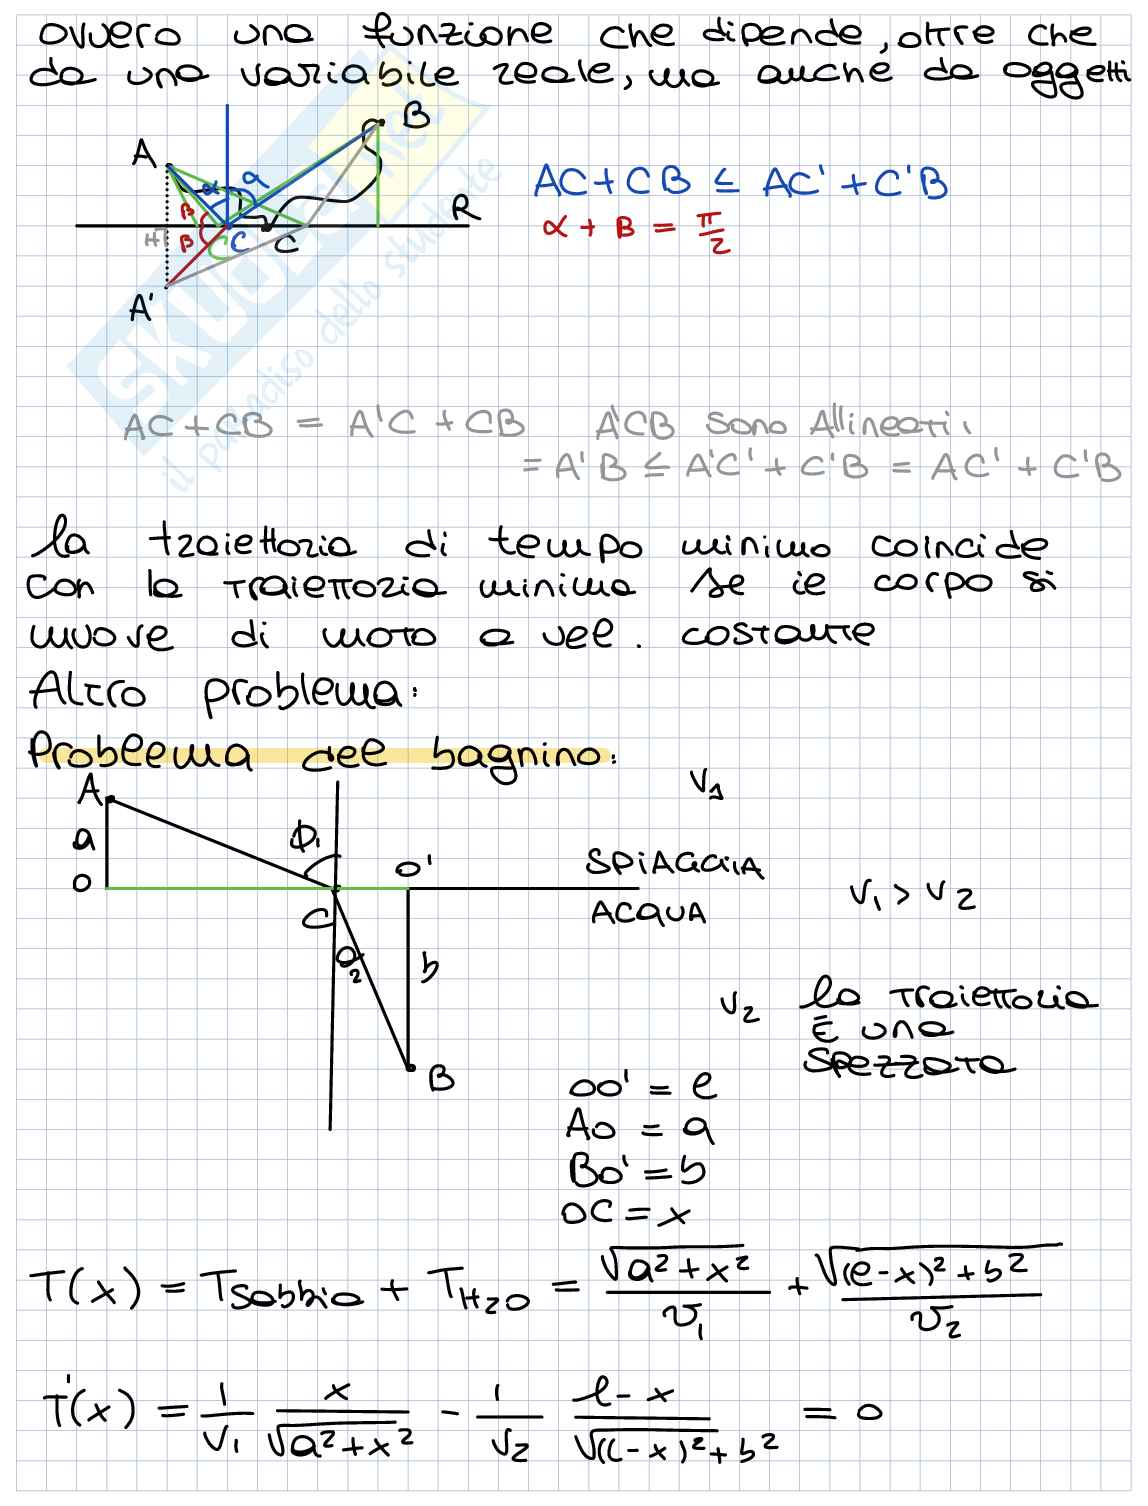 ovvero una funzione che dipende, oltre che
da una variabile reale, ma anche da oggetti
A
B
α
α
β
β
H
C
C
R
A'
AC + CB ≤ AC' + C'B
α + β = π/2
AC + CB = A'C + CB A'CB sono Allineati.
= A'B ≤ A'C' + C'B = AC' + C'B
la traiettoria di tempo minimo coincide
con la traiettoria minima se il corpo si
muove di moto a vel. costante
Altro problema:
Problema del bagnino:
A
a
O
Φ₁
O'
C
b
B
V₁
SPIAGGIA
ACQUA
V₁ > V₂
V₂
la traiettoria
È una
spezzata
OO' = l
AO = a
BO' = b
OC = x
T(x) = Tsabbia + TH2O = √(a²+x²)/v₁ + √((l-x)²+b²)/v₂
T'(x) = 1/v₁ x/√(a²+x²) - 1/v₂ (l-x)/√((l-x)²+b²) = 0
SKUOLA.net
il paradiso dello studente